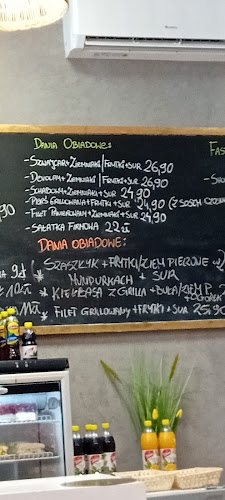 DANIA OBIADOWE:
FAS
- SZWAJCAR + ZIEMNIAKI | FRYTKI + SUR 26,90
- DEVOLAY + ZIEMNIAKI | FRYTKI + SUR 26,90
- SCHABOWY + ZIEMNIAKI + SUR 24,90
- PIERŚ GRILLOWANA + FRYTKI + SUR 24,90 (Z SOSEM
- FILET PANIEROWANY + ZIEMNIAKI + SUR 24,90
- SAŁATKA FIRMOWA 22zł
DANIA OBIADOWE:
* SZASZŁYK + FRYTKI/ZIEM PIECZONE W
MUNDURKACH + SUR
* KIEŁBASA Z GRILLA + BUŁKA/ZIEM P.
+ OGÓREK
* FILET GRILLOWANY + FRYTKI + SUR 25,90
,90
9zł
10zł
11zł